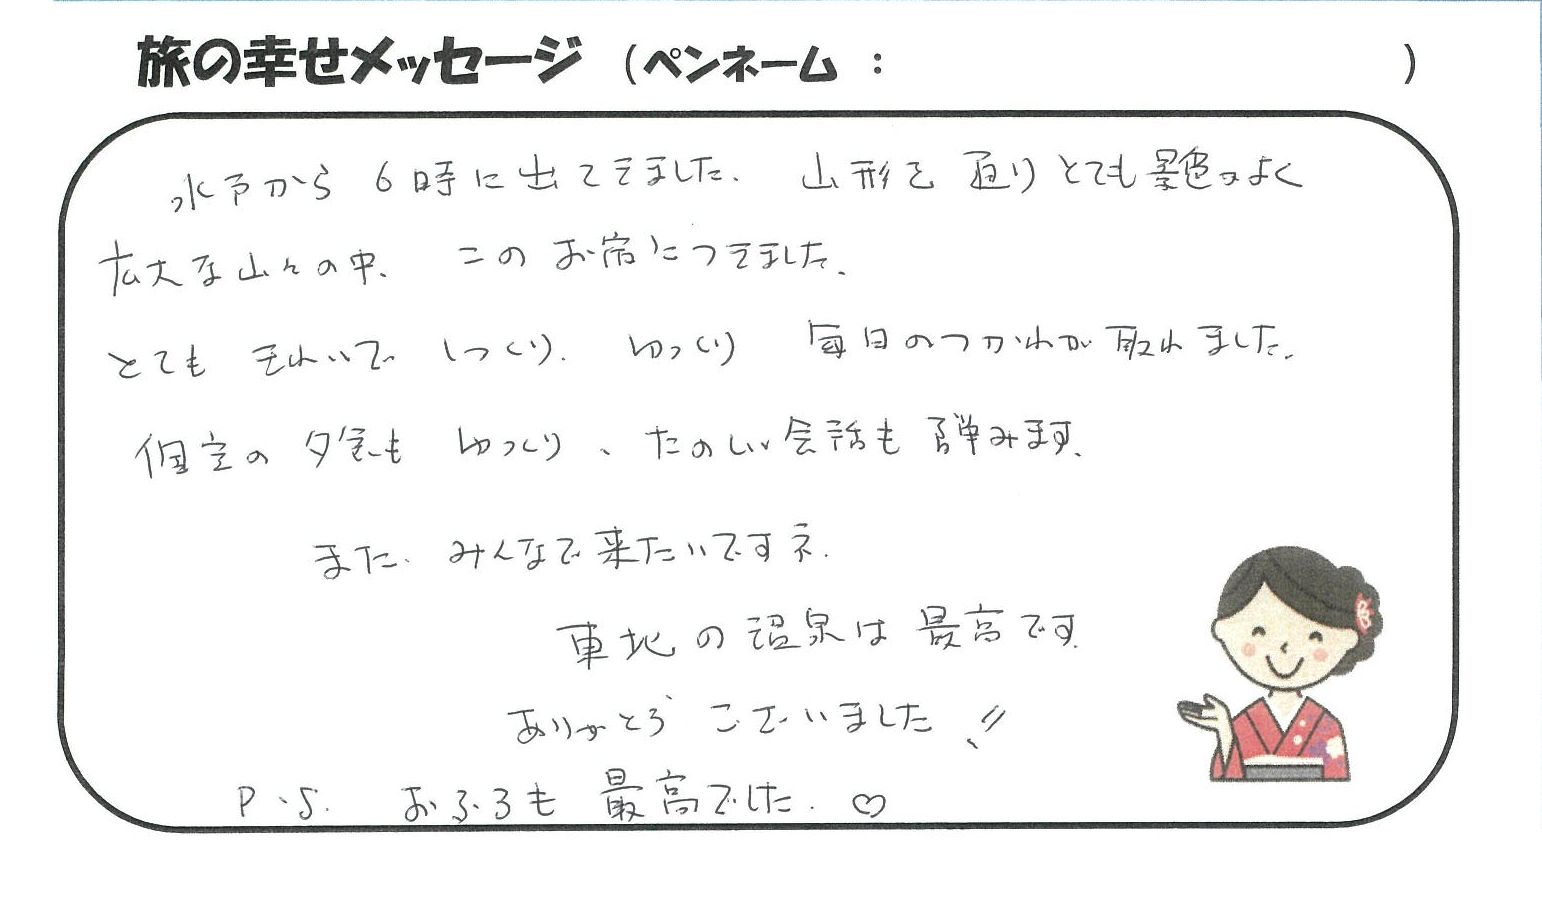 旅の幸せメッセージ（ペンネーム：　　　　　）
水戸から 6時に出てきました、 山形を 通り とても 景色のよく
広大な山々の中、 このお宿につきました、
とても きれいで しっくり、 ゆっくり 毎日のつかれが取れました、
個室の 夕食も ゆっくり、たのしい会話も 弾みます、
また、みんなで来たいですネ、
東北の温泉は 最高です、
ありがとう ございました！！
P.S. おふろも 最高でした、♡